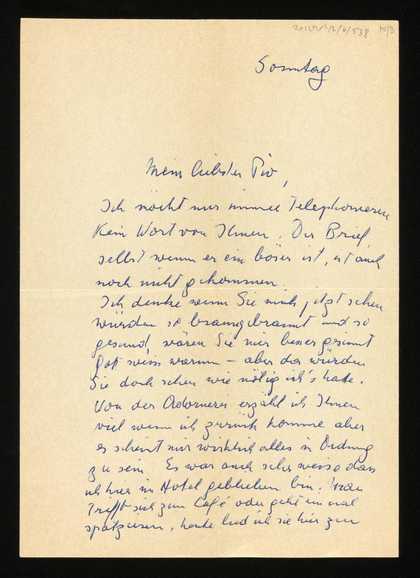 Sonntag
Mein liebster Pio,
Ich möcht nur immer Telephonieren
Kein Wort von Ihnen. Der Brief,
selbst wenn er ein böser ist, ist auch
noch nicht gekommen.
Ich denke wenn Sie mich jetzt sehen
würden so braungebrannt und so
gesund, wären Sie mir besser gesinnt
Gott weiss warum – aber da würden
Sie doch sehen wie nötig ich's habe.
Von der erzähl ich Ihnen
viel wenn ich zurück komme aber
es scheint mir wirklich alles in Ordnung
zu sein. Es war auch sehr weise dass
ich hier im Hotel geblieben bin. Man
Trifft sich zum Café oder geht einmal
spatzieren, heute lud ich sie hier zum